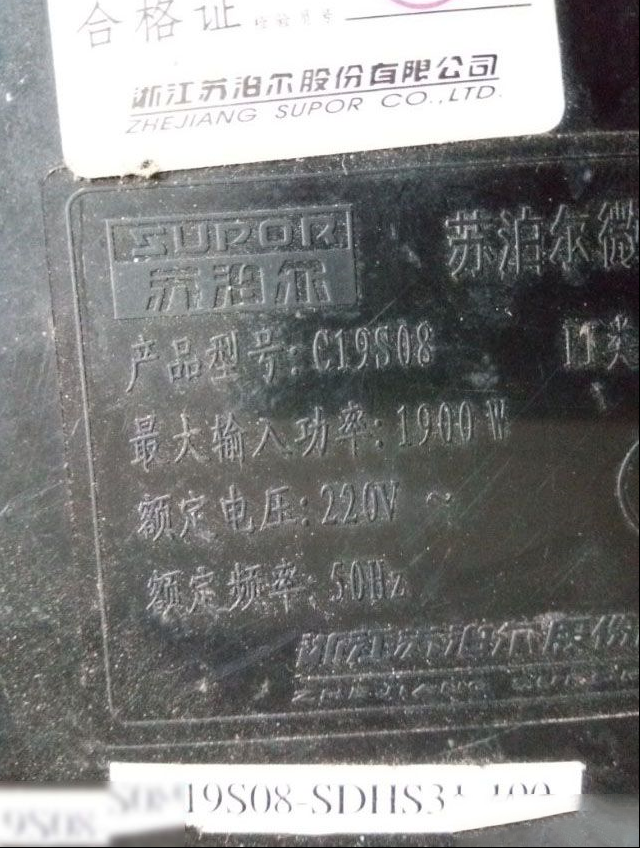 合格证 检验员号
浙江苏泊尔股份有限公司
ZHEJIANG SUPOR CO.,LTD.
SUPOR
苏泊尔
苏泊尔微
产品型号:C19S08
最大输入功率:1900W
额定电压:220V ~
额定频率:50Hz
浙江苏泊尔股份
ZHEJIANG SUPOR
19S08-SDHS31
9S08